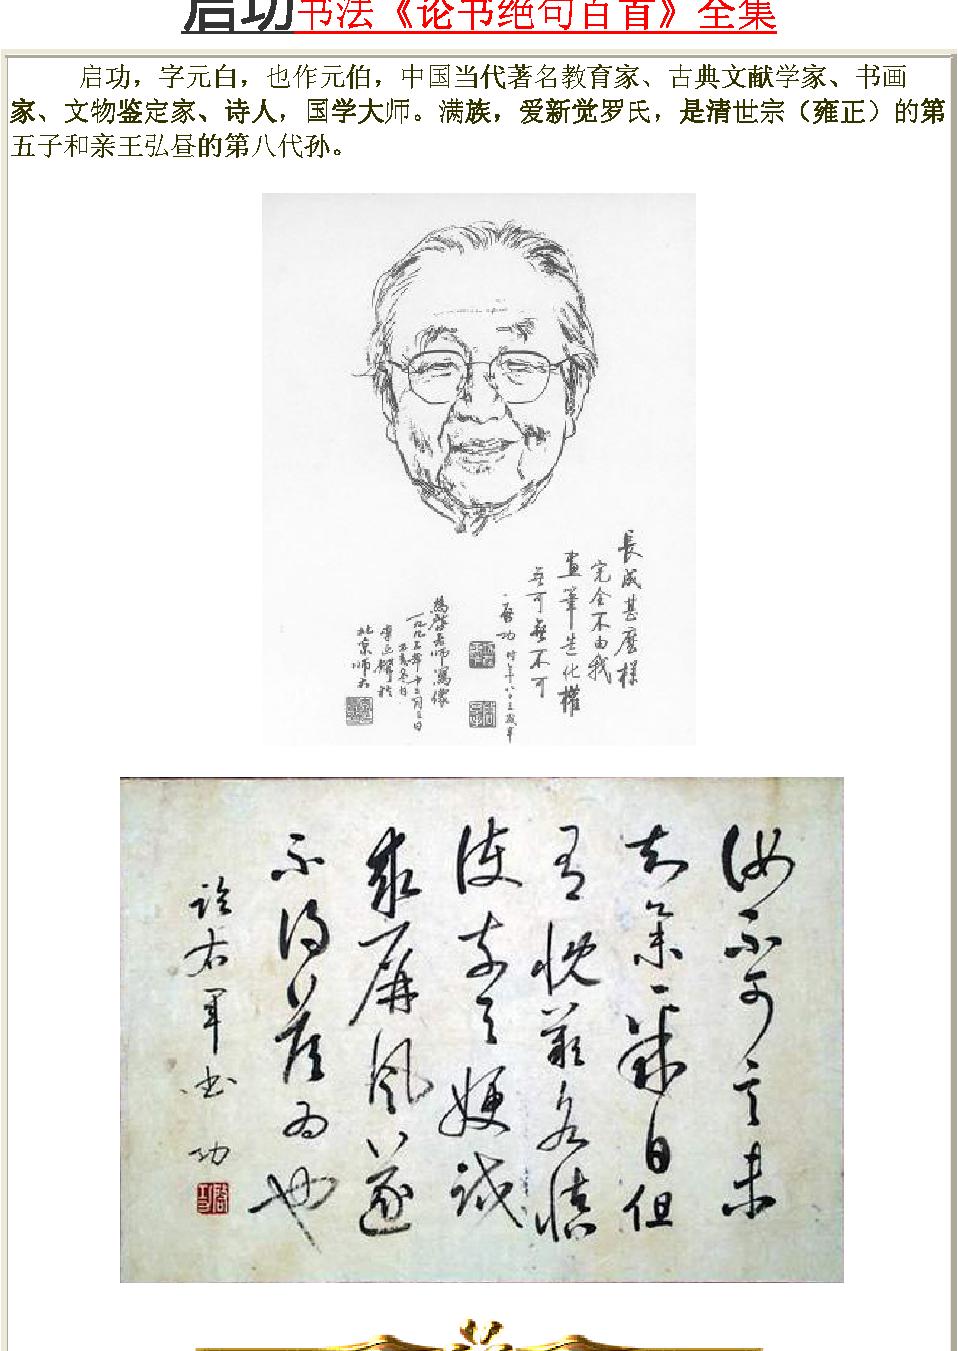 启功书法《论书绝句百首》全集
启功，字元白，也作元伯，中国当代著名教育家、古典文献学家、书画
家、文物鉴定家、诗人，国学大师。满族，爱新觉罗氏，是清世宗（雍正）的第
五子和亲王弘昼的第八代孙。
長成甚麼樣
完全不由我
畫筆造化權
無可無不可
啓功
為啓老師寫像
一九九五年十二月三日
北京師大
汝不可言未
知集聚日但
有慨歎各慎
求屏風遂
不得答为也
臨右軍书 功